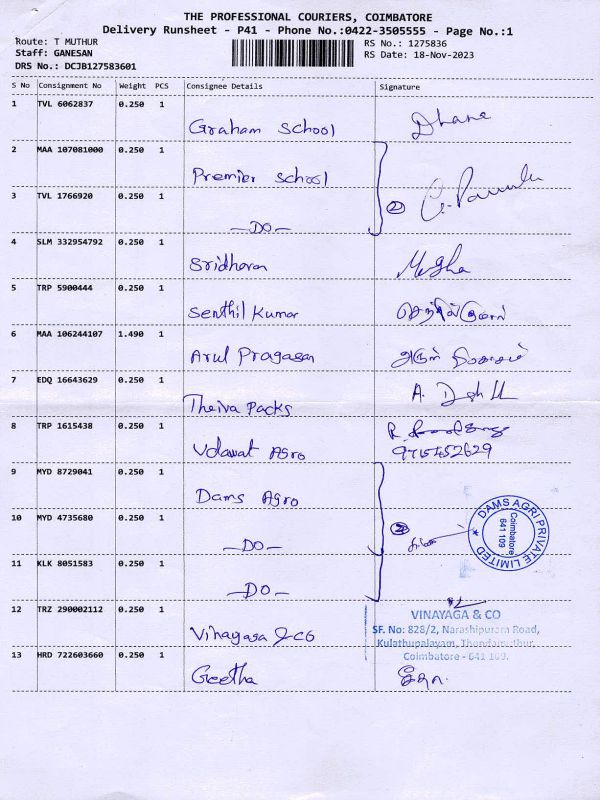 THE PROFESSIONAL COURIERS, COIMBATORE
Delivery Runsheet - P41 - Phone No.:0422-3505555 - Page No.:1
Route: T MUTHUR RS No.: 1275836
Staff: GANESAN RS Date: 18-Nov-2023
DRS No.: DCJB127583601
S No Consignment No Weight PCS Consignee Details Signature
1 TVL 6062837 0.250 1
Graham School Dhane
2 MAA 107081000 0.250 1
Premier School
3 TVL 1766920 0.250 1 ②
—DO—
4 SLM 332954792 0.250 1
Sridharan
5 TRP 5900444 0.250 1
Senthil Kumar செந்தில்குமார்
6 MAA 106244107 1.490 1
Arul Pragasan அருள்
7 EDQ 16643629 0.250 1
Theiva Packs
8 TRP 1615438 0.250 1
Udawat Agro 9715452629
9 MYD 8729041 0.250 1
Dams Agro
10 MYD 4735680 0.250 1
—DO—
DAMS AGRI PRIVATE LIMITED
Coimbatore
641 109
11 KLK 8051583 0.250 1
—DO—
12 TRZ 290002112 0.250 1
Vinayaga & co
VINAYAGA & CO
SF. No: 828/2, Narashipuram Road,
Kulathupalayam, Thondamuthur,
Coimbatore - 641 109.
13 HRD 722603660 0.250 1
Geetha கீதா